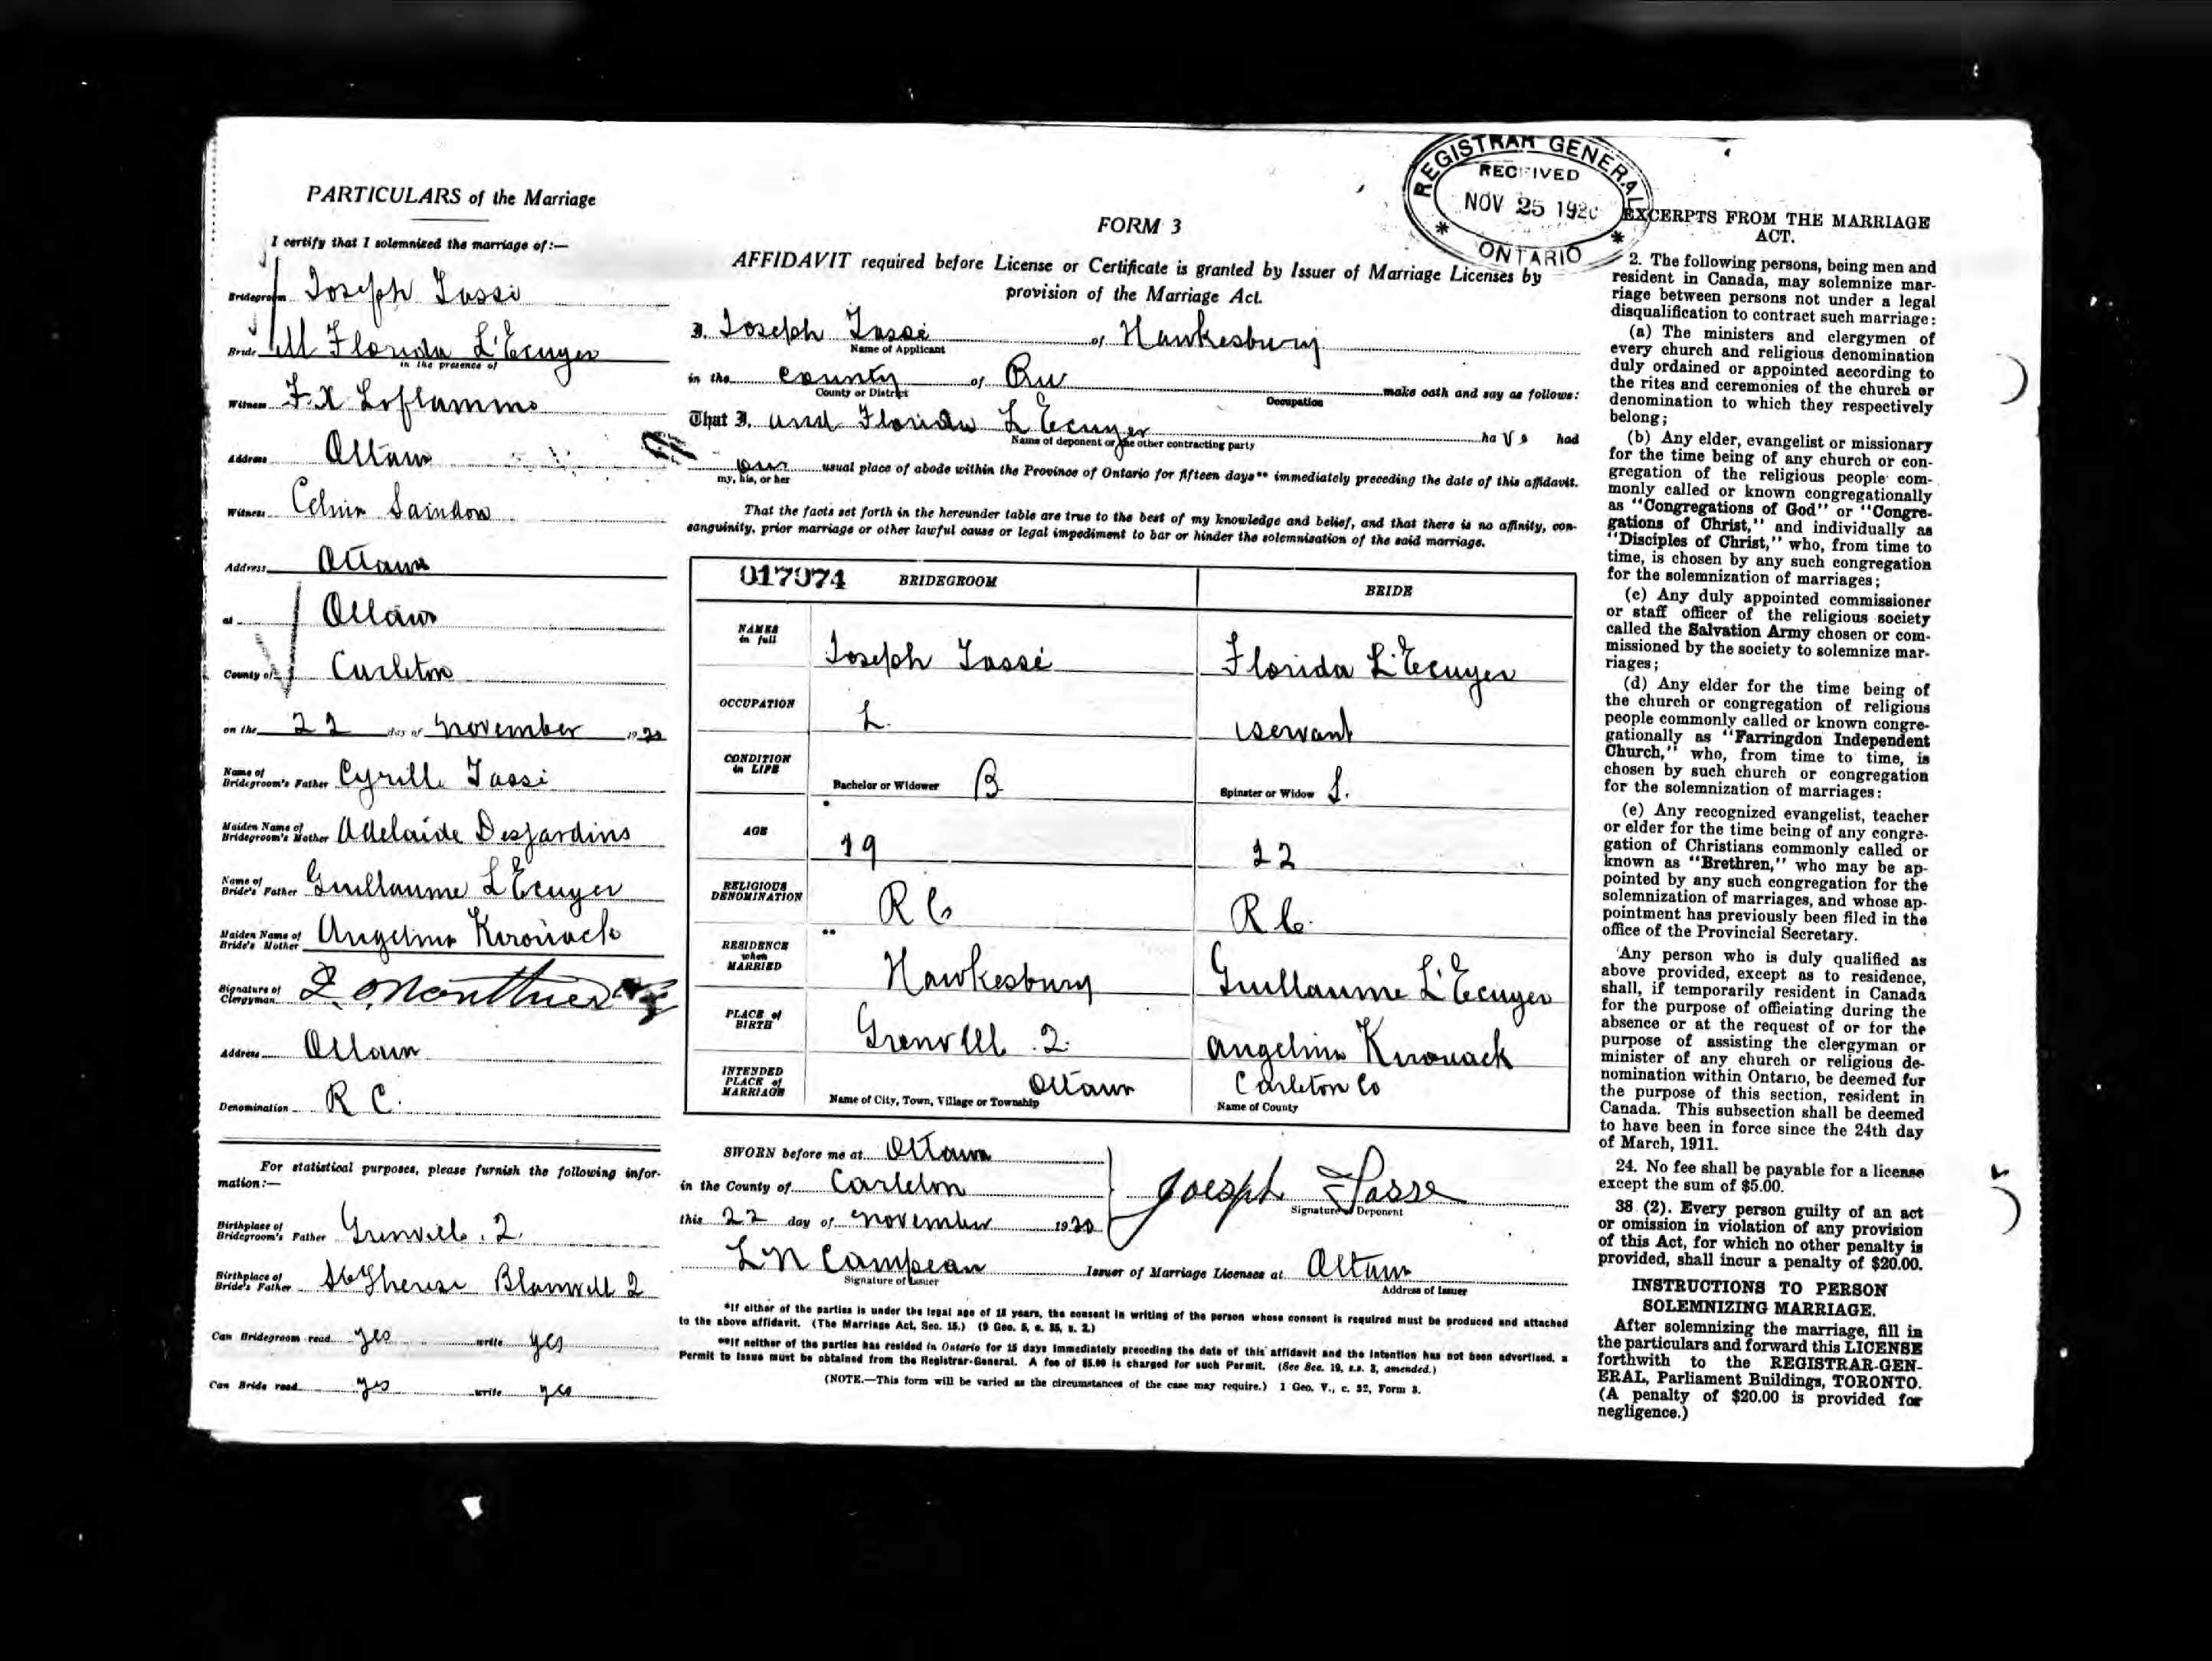 PARTICULARS of the Marriage
I certify that I solemnized the marriage of:—
Bridegroom Joseph Tassé
Bride M Florida L'Ecuyer
in the presence of
Witness F.X Laflamme
Address Ottawa
Witness Saindon
Address Ottawa
at Ottawa
County of Carleton
on the 22 day of november 1920
Name of Bridegroom's Father Cyrille Tassé
Maiden Name of Bridegroom's Mother Adelaide Desjardins
Name of Bride's Father Guillaume L'Ecuyer
Maiden Name of Bride's Mother Angelina Kirouack
Signature of Clergyman
Address Ottawa
Denomination R C.
For statistical purposes, please furnish the following infor-
mation:—
Birthplace of Bridegroom's Father Grenville. 2.
Birthplace of Bride's Father Ste Therese 2
Can Bridegroom read yes write yes
Can Bride read yes write yes
REGISTRAR GENERAL
RECEIVED
NOV 25 1920
ONTARIO
FORM 3
AFFIDAVIT required before License or Certificate is granted by Issuer of Marriage Licenses by
provision of the Marriage Act.
I, Joseph Tassé of Hawkesbury
Name of Applicant
in the county of make oath and say as follows:
County or District Occupation
That I, and Florida L'Ecuyer ha ve had
Name of deponent or the other contracting party
our usual place of abode within the Province of Ontario for fifteen days** immediately preceding the date of this affidavit.
my, his, or her
That the facts set forth in the hereunder table are true to the best of my knowledge and belief, and that there is no affinity, con-
sanguinity, prior marriage or other lawful cause or legal impediment to bar or hinder the solemnization of the said marriage.
017974 BRIDEGROOM BRIDE
NAMES in full Joseph Tassé Florida L'Ecuyer
OCCUPATION L. servant
CONDITION in LIFE Bachelor or Widower B Spinster or Widow S.
AGE * 19 22
RELIGIOUS DENOMINATION R C R C.
RESIDENCE when MARRIED ** Hawkesbury Guillaume L'Ecuyer
PLACE of BIRTH Grenvill .2. Angelina Kirouack
INTENDED PLACE of MARRIAGE Ottawa Carleton Co
Name of City, Town, Village or Township Name of County
SWORN before me at Ottawa
in the County of Carleton
this 22 day of november 1920
Joesph Tasse
Signature of Deponent
L N Campeau Issuer of Marriage Licenses at Ottawa
Signature of Issuer Address of Issuer
*If either of the parties is under the legal age of 18 years, the consent in writing of the person whose consent is required must be produced and attached
to the above affidavit. (The Marriage Act, Sec. 15.) (9 Geo. 5, c. 35, s. 2.)
**If neither of the parties has resided in Ontario for 15 days immediately preceding the date of this affidavit and the intention has not been advertised, a
Permit to Issue must be obtained from the Registrar-General. A fee of $5.00 is charged for such Permit. (See Sec. 19, s.s. 3, amended.)
(NOTE.—This form will be varied as the circumstances of the case may require.) 1 Geo. V., c. 32, Form 3.
EXCERPTS FROM THE MARRIAGE
ACT.
2. The following persons, being men and
resident in Canada, may solemnize mar-
riage between persons not under a legal
disqualification to contract such marriage:
(a) The ministers and clergymen of
every church and religious denomination
duly ordained or appointed according to
the rites and ceremonies of the church or
denomination to which they respectively
belong;
(b) Any elder, evangelist or missionary
for the time being of any church or con-
gregation of the religious people com-
monly called or known congregationally
as "Congregations of God" or "Congre-
gations of Christ," and individually as
"Disciples of Christ," who, from time to
time, is chosen by any such congregation
for the solemnization of marriages;
(c) Any duly appointed commissioner
or staff officer of the religious society
called the Salvation Army chosen or com-
missioned by the society to solemnize mar-
riages;
(d) Any elder for the time being of
the church or congregation of religious
people commonly called or known congre-
gationally as "Farringdon Independent
Church," who, from time to time, is
chosen by such church or congregation
for the solemnization of marriages:
(e) Any recognized evangelist, teacher
or elder for the time being of any congre-
gation of Christians commonly called or
known as "Brethren," who may be ap-
pointed by any such congregation for the
solemnization of marriages, and whose ap-
pointment has previously been filed in the
office of the Provincial Secretary.
Any person who is duly qualified as
above provided, except as to residence,
shall, if temporarily resident in Canada
for the purpose of officiating during the
absence or at the request of or for the
purpose of assisting the clergyman or
minister of any church or religious de-
nomination within Ontario, be deemed for
the purpose of this section, resident in
Canada. This subsection shall be deemed
to have been in force since the 24th day
of March, 1911.
24. No fee shall be payable for a license
except the sum of $5.00.
38 (2). Every person guilty of an act
or omission in violation of any provision
of this Act, for which no other penalty is
provided, shall incur a penalty of $20.00.
INSTRUCTIONS TO PERSON
SOLEMNIZING MARRIAGE.
After solemnizing the marriage, fill in
the particulars and forward this LICENSE
forthwith to the REGISTRAR-GEN-
ERAL, Parliament Buildings, TORONTO.
(A penalty of $20.00 is provided for
negligence.)